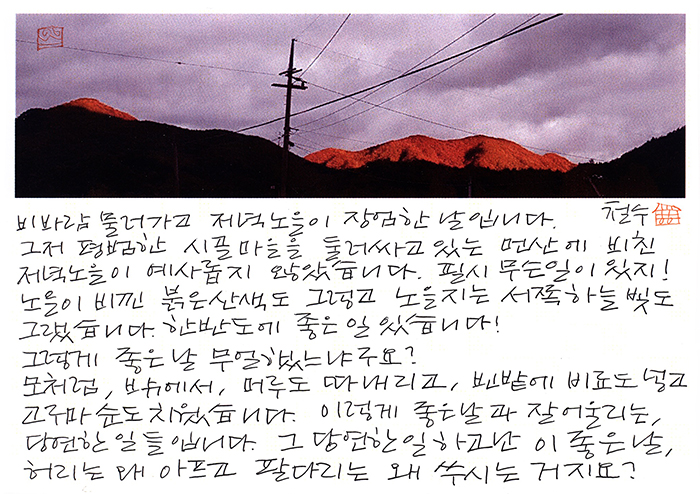 비바람 물러가고 저녁노을이 장엄한 날입니다. 철수
그저 평범한 시골마을을 둘러싸고 있는 먼산에 비친
저녁노을이 예사롭지 않았습니다. 필시 무슨일이 있지!
노을이 비낀 붉은산색도 그렇고 노을지는 서쪽하늘 빛도
그랬습니다. 한반도에 좋은 일 있습니다!
그렇게 좋은 날 무얼했느냐구요?
모처럼, 밖에서, 머루도 따내리고, 빈밭에 비료도 넣고
고구마 순도 치웠습니다. 이렇게 좋은날과 잘어울리는,
당연한 일들입니다. 그 당연한일 하고난 이 좋은 날,
허리는 왜 아프고 팔다리는 왜 쑤시는 거지요?